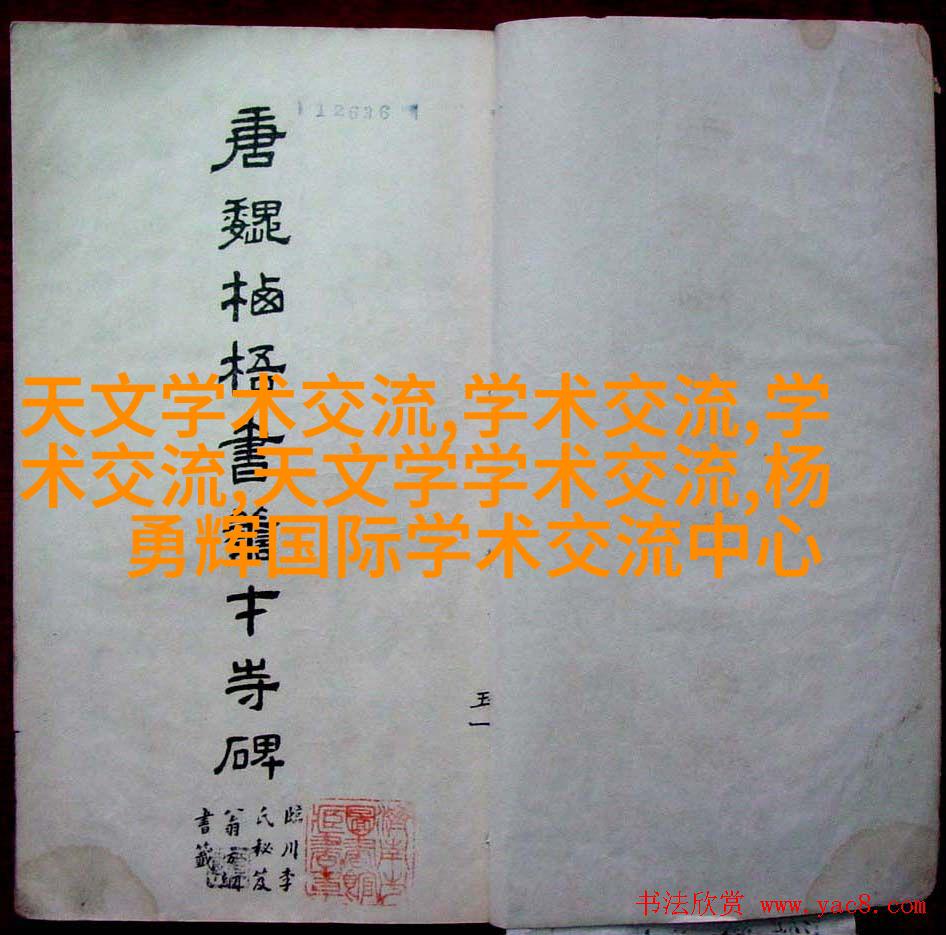 12636
唐魏栖梧書善才寺碑
天文学术交流,学术交流,学
术交流,天文学学术交流,杨
勇辉国际学术交流中心
臨川李
氏秘笈
翁方綱
書籤
书法欣赏 www.yac8.com